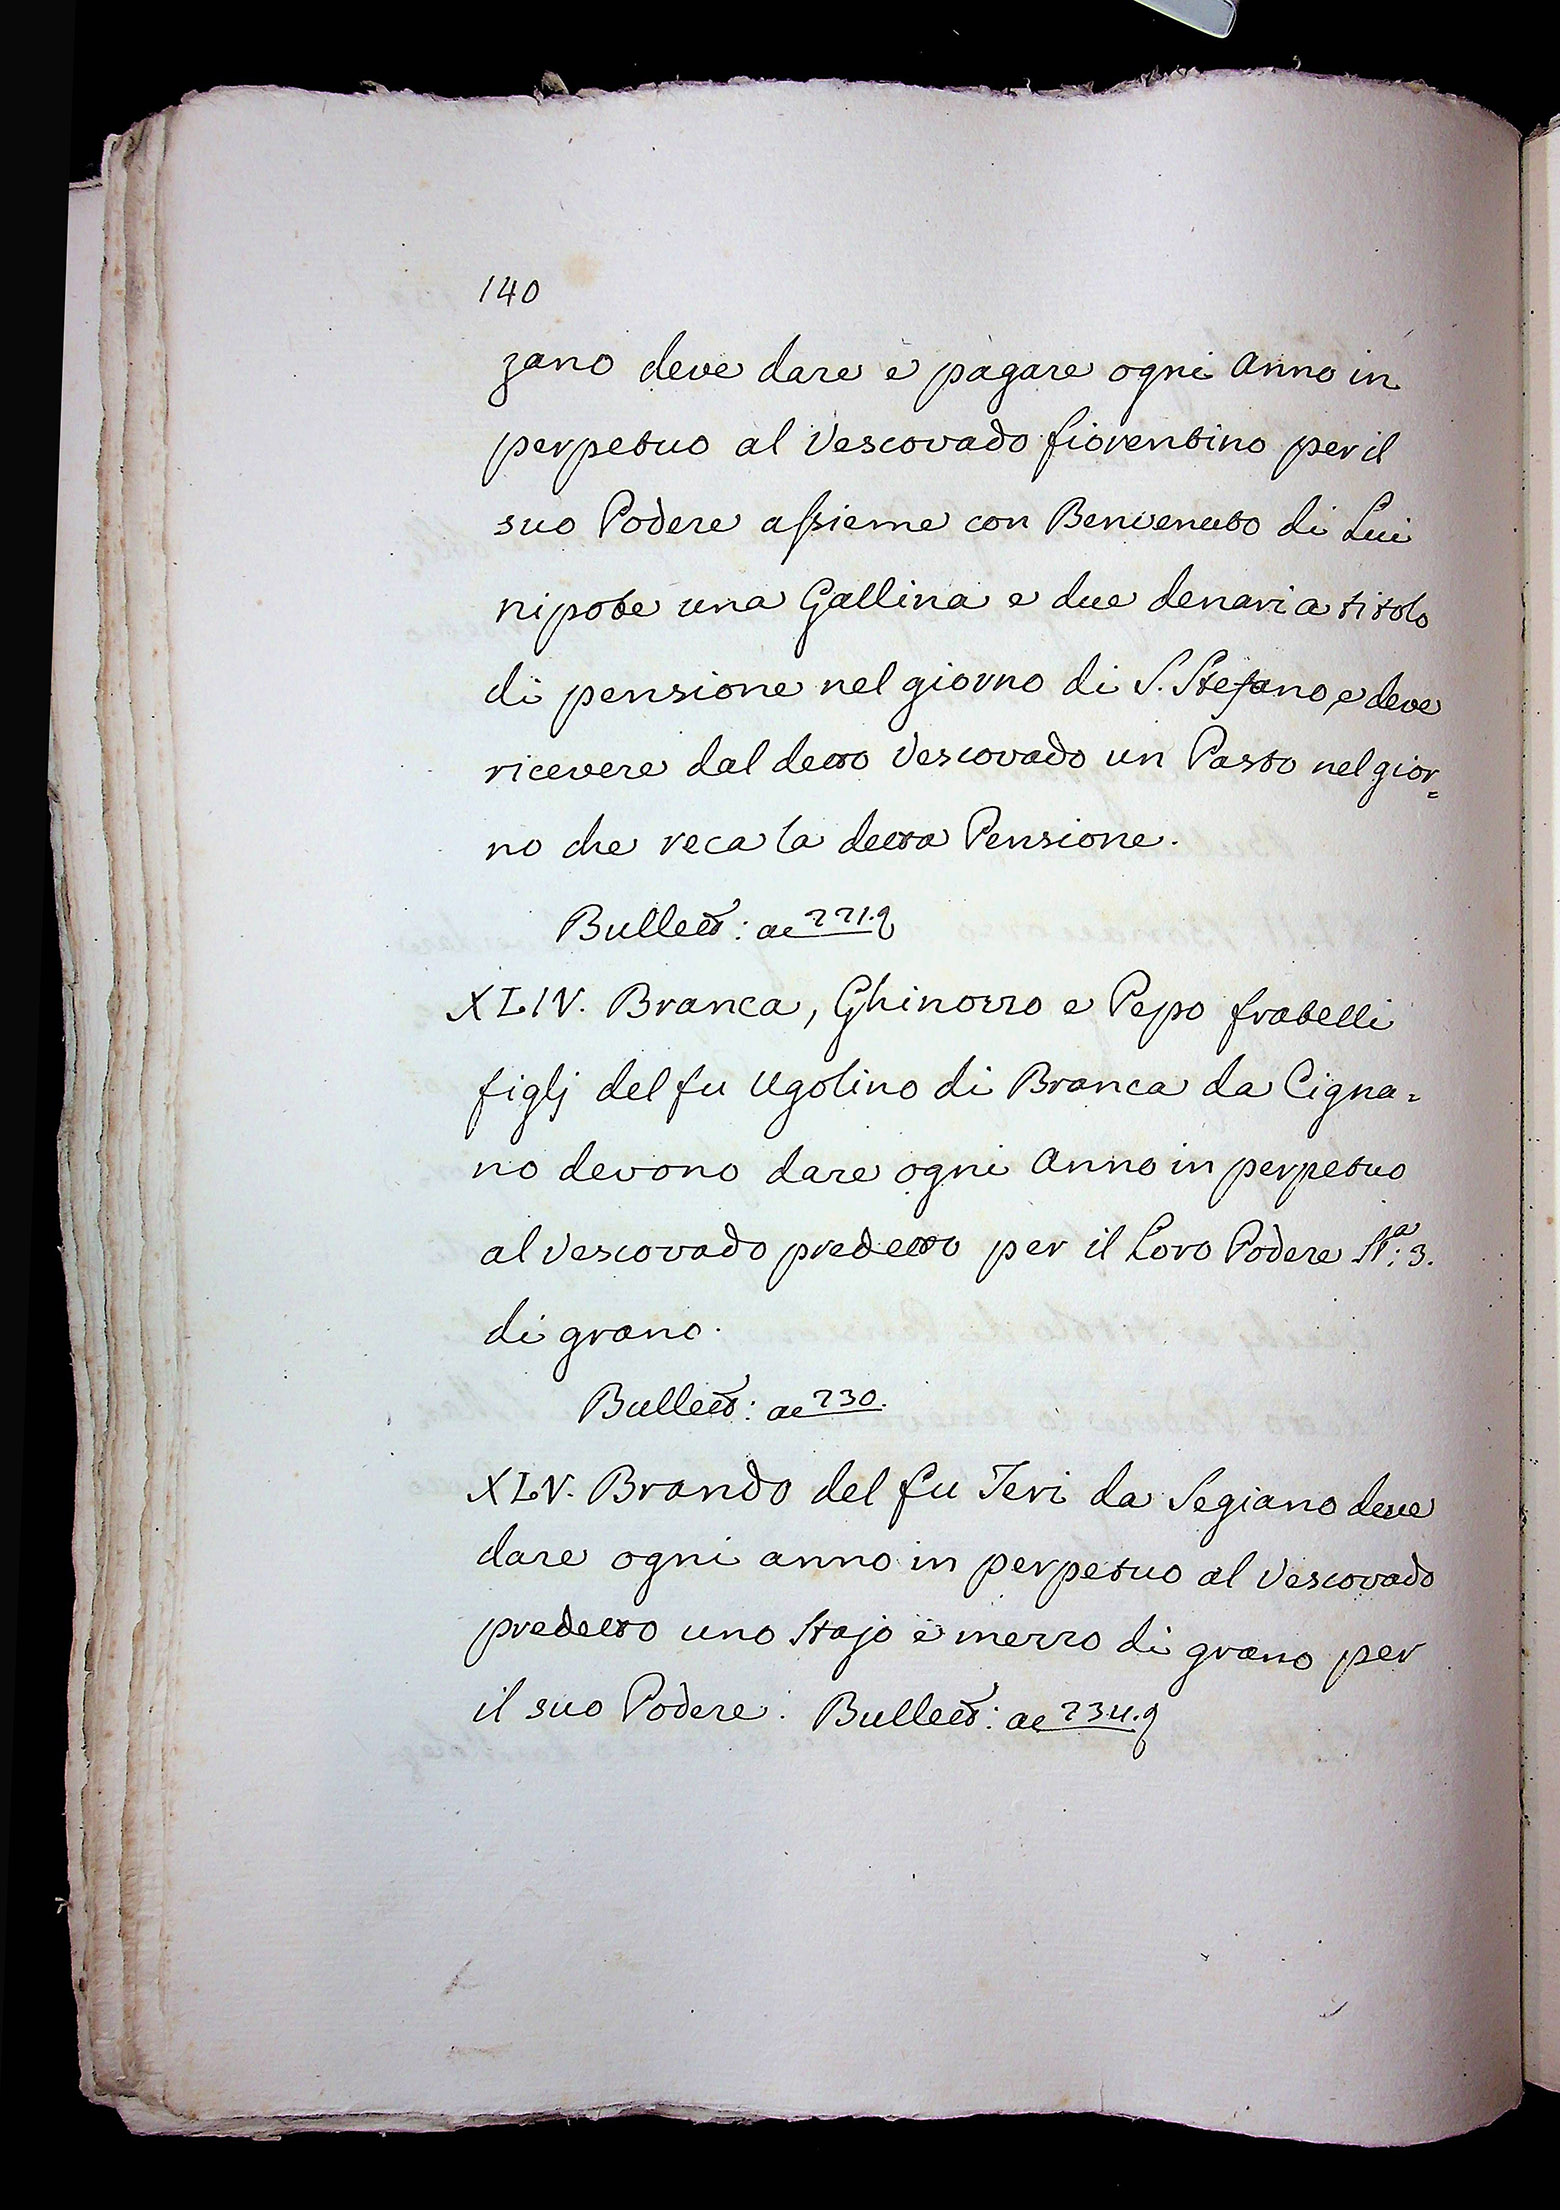 140
zano deve dare e pagare ogni Anno in
perpetuo al Vescovado fiorentino per il
suo Podere assieme con Benvenuto di Lui
nipote una Gallina e due denari a titolo
di pensione nel giorno di S. Stefano, e deve
ricevere dal detto Vescovado un Pasto nel gior=
no che reca la detta Pensione.
Bullett:
XLIV. Branca, Ghinozzo e Pepo fratelli
figlj del fu Ugolino di Branca da Cigna=
no devono dare ogni Anno in perpetuo
al Vescovado predetto per il Loro Podere Sta: 3.
di grano.
Bullett: ac 230.
XLV. Brando del fu Teri da Segiano deve
dare ogni anno in perpetuo al Vescovado
predetto uno Stajo e mezzo di grano per
il suo Podere. Bullett: